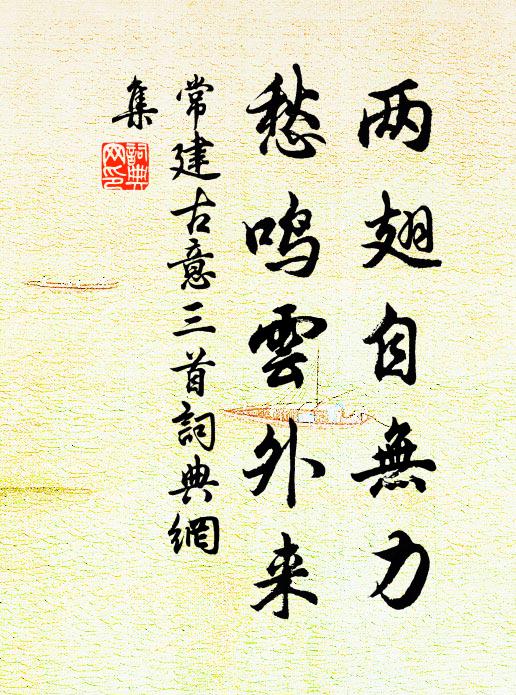 两翅自無力
愁鸣雲外来
常建古意三首詞典網
集
詞典
网印